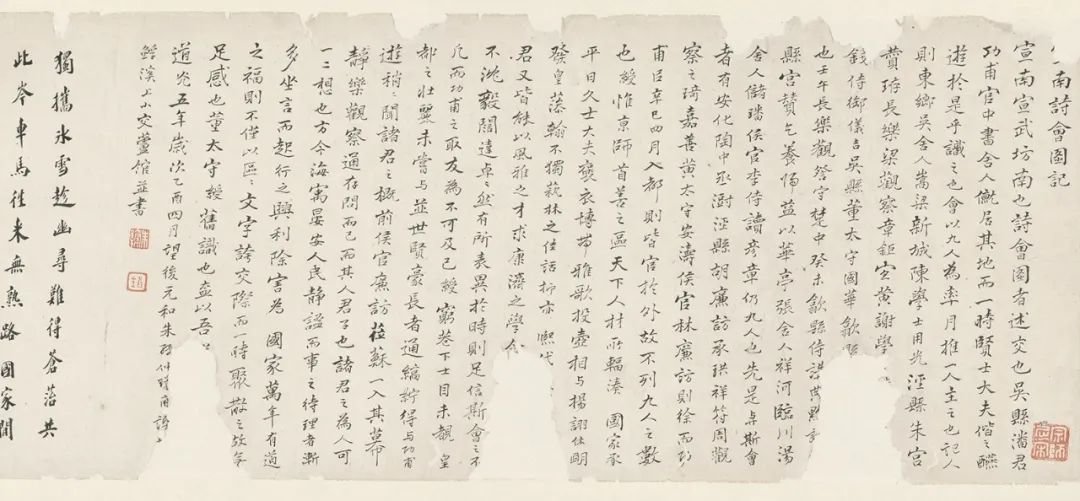 南詩會圖記
宣南宣武坊南也詩會圖者述交也吳縣潘君
功甫官中書舍人僦居其地而一時賢士大夫偕之醼
遊於是乎識之也會以九人為率月推一人主之也記人
則東鄉吳舍人嵩梁新城陳學士用光涇縣朱宮
贊珔長樂梁觀察章鉅宜黃謝學
錢侍御儀吉吳縣董太守國華歙
也壬午長樂觀詧守楚中癸未歙縣侍講典黔
縣宮贊乞養歸益以華亭張舍人祥河臨川湯
舍人儲璠侯官李侍讀彥章仍九人也先是與斯會
者有安化陶中丞澍涇縣胡廉訪承珙祥符周觀
察之琦嘉善黃太守安濤侯官林廉訪則徐而功
甫臣辛巳四月入都則皆官於外故不列九人之數
也綬惟京師首善之區天下人材所輻湊 國家承
平日久士大夫褒衣博帶雅歌投壺相與揚詡休明
發皇藻翰不獨萟林之佳話抑亦熙代
君又皆能以風雅之才求康濟之學
不沈毅闊達卓〻然有所表異於時則足信斯會之不
凡而功甫之取友為不可及已綬窮巷下士目未覩 皇
都之壯麗未嘗與並世賢豪長者通縞紵得與功甫
遊稍〻聞諸君之概前侯官廉訪莅蘇一入其幕而
靜樂觀察通存問而已而其人君子也諸君之為人可
一二想也方今海寓晏安人民靜謐而事之待理者漸
多坐言而起行之興利除害為 國家萬年有道
之福則不僅以區〻文字誇交際而一時聚散之故
足感也董太守綬舊識也並以吾
道光五年歲次乙酉四月望後元和朱綬仲環甫譔
溪上小交蘆館並書
獨攜冰雪趁幽尋難得蒼茫共
此岑車馬往來無熟路國家閒